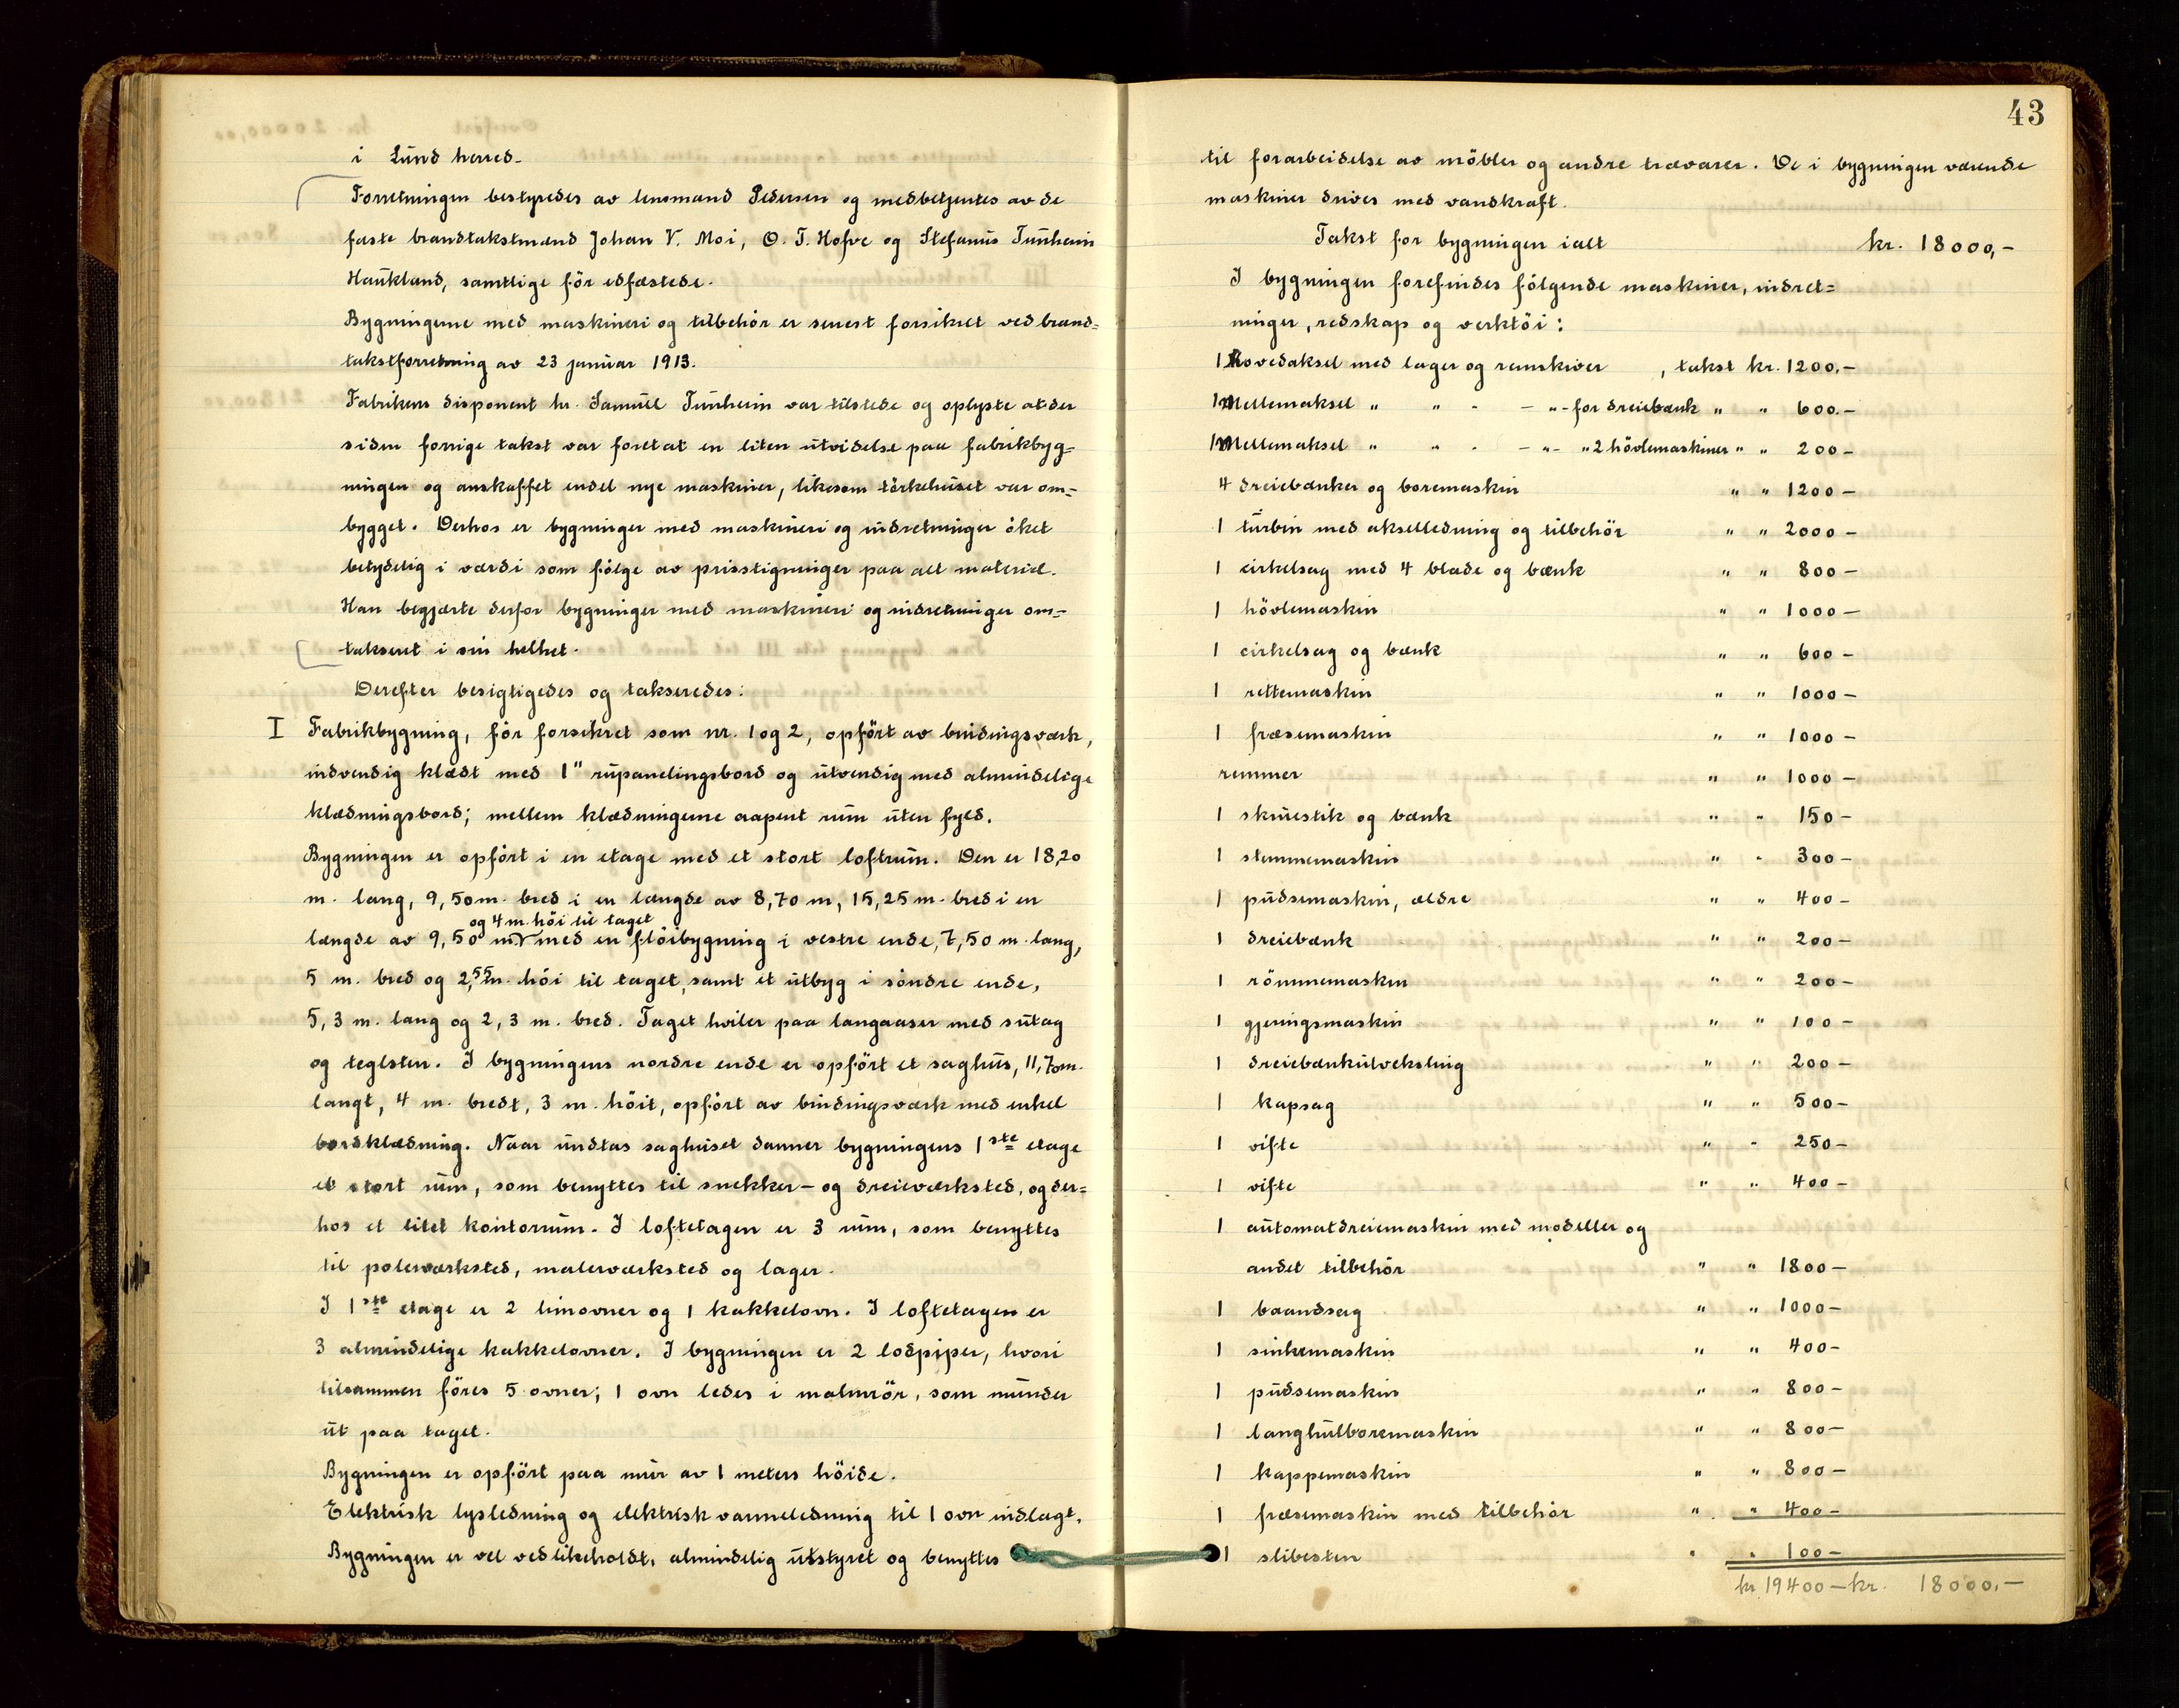 i Lund herred.
Forretningen bestyredes av lensmand Pedersen og medbetjentes av de
faste brandtakstmænd Johan V. Moi, O. T. Hofve og Stefanus Tunheim
Haukland, samtlige før edfæstede.
Bygningerne med maskineri og tilbehör er senest forsikret ved brand=
takstforretning av 23 januar 1913.
Fabrikens disponent hr. Samuel Tunheim var tilstede og oplyste at der
siden forrige takst var foretat en liten utvidelse paa fabrikbyg=
ningen og anskaffet endel nye maskiner, likesom törkehuset var om=
bygget. Derhos er bygninger med maskineri og indretninger öket
betydelig i værdi som følge av prisstigninger paa alt material.
Han begjærte derfor bygninger med maskineri og indretninger om=
takseret i sin helhet.
Derefter besigtigedes og takseredes:
I Fabrikbygning, før forsikret som nr. 1 og 2, opfört av bindingsværk,
indvendig klædt med 1" rupanelingsbord og utvendig med almindelige
klædningsbord; mellem klædningerne aapent rum uten fyld.
Bygningen er opfört i en etage med et stort loftrum. Den er 18,20
m. lang, 9,50 m. bred i en længde av 8,70 m, 15,25 m. bred i en
og 4 m. höi til taget
længde av 9,50 m. V med en flöibygning i vestre ende, 7,50 m. lang,
5 m. bred og 2,55 m. höi til taget, samt et utbyg i söndre ende,
5,3 m. lang og 2,3 m. bred. Taget hviler paa langaaser med sutag
og teglsten. I bygningens nordre ende er opfört et saghus, 11,70 m.
langt, 4 m. bredt, 3 m. höit, opfört av bindingsværk med enkel
bordklædning. Naar undtas saghuset danner bygningens 1ste etage
et stort rum, som benyttes til snekker- og dreieværksted, og der=
hos et litet kontorrum. I loftetagen er 3 rum, som benyttes
til polerværksted, malerværksted og lager.
I 1ste etage er 2 limovner og 1 kakkelovn. I loftetagen er
3 almindelige kakkelovner. I bygningen er 2 lodpiper, hvori
tilsammen föres 5 ovner; 1 ovn ledes i malmrör, som munder
ut paa taget.
Bygningen er opfört paa mur av 1 meters höide.
Elektrisk lysledning og elektrisk varmeledning til 1 ovn indlagt.
Bygningen er vel vedlikeholdt, almindelig utstyret og benyttes
43
til forarbeidelse av möbler og andre trævarer. De i bygningen værende
maskiner drives med vandkraft.
Takst for bygningen ialt kr. 18000,-
I bygningen forefindes følgende maskiner, indret=
ninger, redskap og verktöi:
1 Hovedaksel med lager og remskiver, takst kr. 1200.-
1 Mellemaksel " " - - " - for dreiebænk " " 600.-
1 Mellemaksel " " - - " - " 2 hövlemaskiner " " 200-
4 dreiebænker og boremaskin " " 1200-
1 turbin med akselledning og tilbehör " " 2000-
1 cirkelsag med 4 blade og bænk " " 800-
1 hövlemaskin " " 1000-
1 cirkelsag og bænk " " 600-
1 rettemaskin " " 1000-
1 fræsemaskin " " 1000-
remmer " " 1000-
1 skruestik og bænk " " 150-
1 stemmemaskin " " 300-
1 pudsemaskin, ældre " " 400-
1 dreiebænk " " 200-
1 römmemaskin " " 200-
1 gjeringsmaskin " " 100-
1 dreiebænkutveksling " " 200-
1 kapsag " " 500-
1 vifte " " 250-
1 vifte " " 400-
1 automatdreiemaskin med modeller og
andet tilbehör " " 1800-
1 baandsag " " 1000-
1 sinkemaskin " " 400-
1 pudsemaskin " " 800-
1 langhulboremaskin " " 800-
1 kappemaskin " " 800-
1 fræsemaskin med tilbehör " " 400-
1 slibesten " " 100-
kr 19400- kr. 18000.-